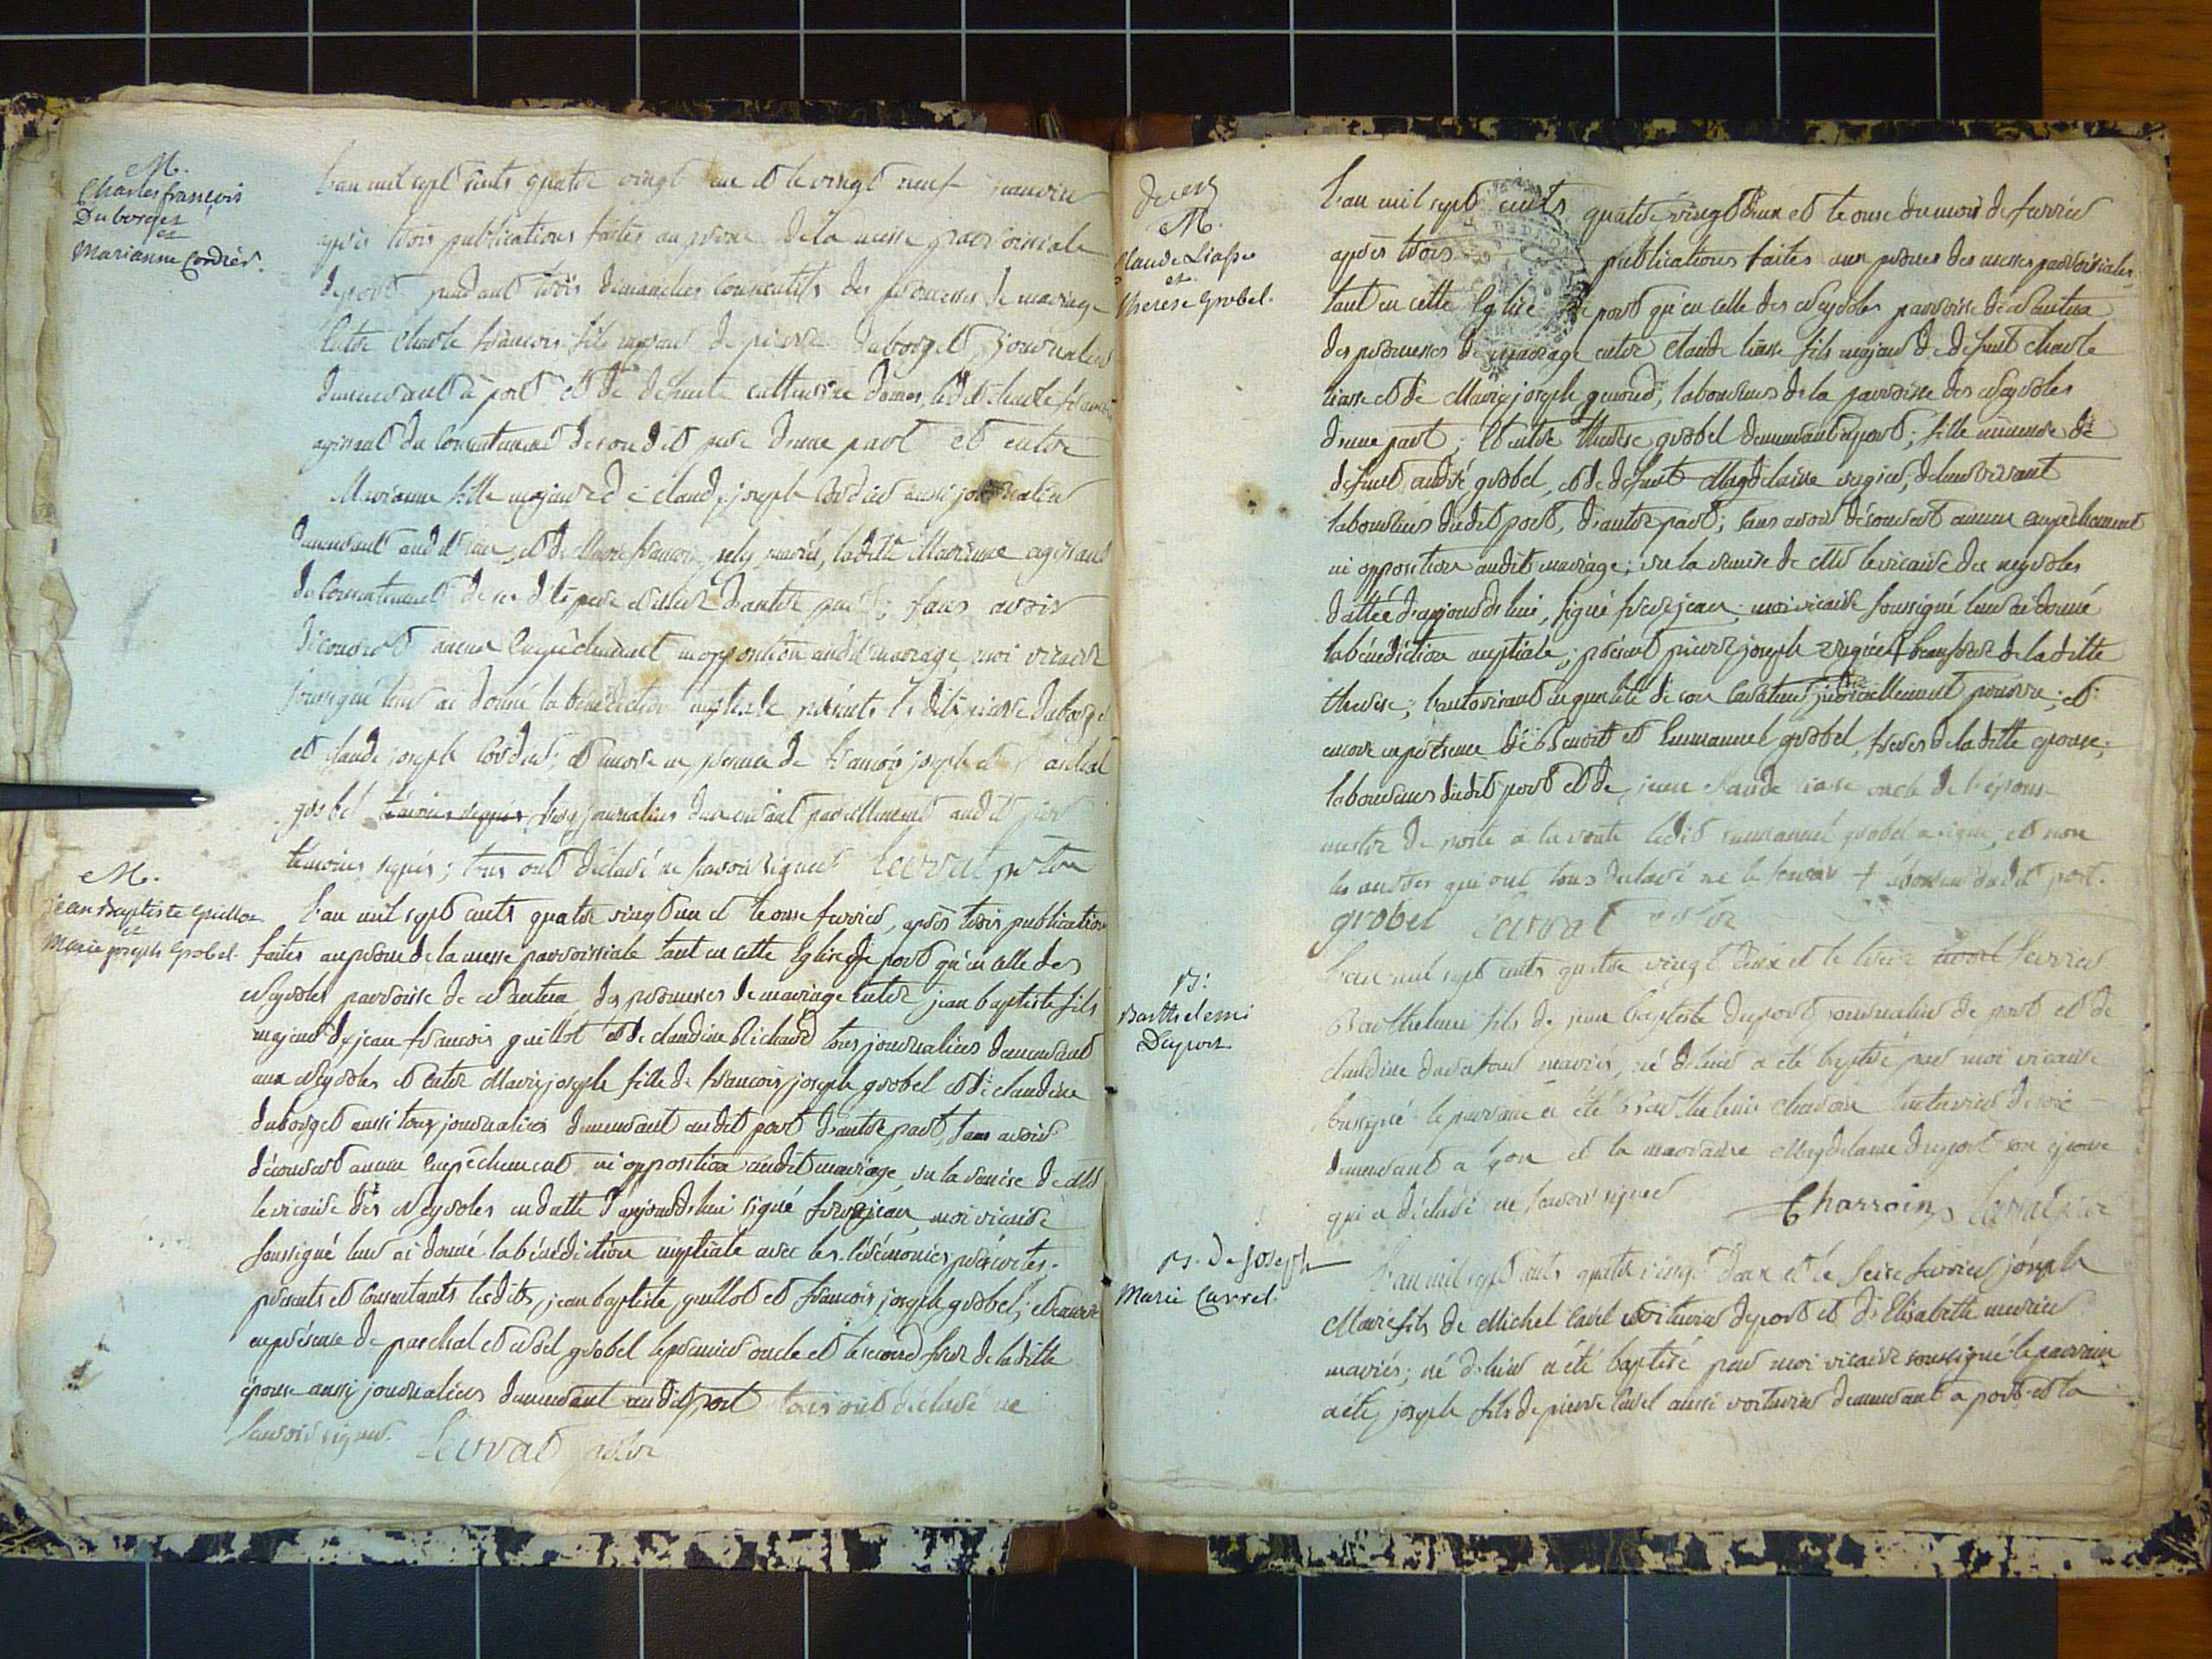 M.
Charles françois
Duborget
et
Marianne Cordier.
L'an mil sept cents quatre vingt un et le vingt neuf janvier
après trois publications faites au prone de la messe paroissiale
de port pendant trois dimanches consécutifs des promesses de mariage
entre charle françois fils majeur de pierre duborget, journalier
demeurant à port et de defunte catherine ledit charle françois
agissant du consentement de son dit pere d'une part et entre
Marianne fille majeure de claude joseph Cordier aussi journalier
demeurant audit lieu, et de Marie françoise mariés, laditte Marianne agissant
du consentement de ses dits pere et d'autre part; sans avoir
découvert aucun empêchement ni opposition audit mariage, moi vicaire
soussigné leur ai donné la bénédiction nuptiale présents lesdits pierre duborget
et claude joseph cordier; et encore en présence de françois joseph et paschal
grobel tous journaliers demeurant pareillement audit port
témoins requis; tous ont déclaré ne savoir signer
M.
Jean Baptiste Guillot
et
Marie joseph Grobel.
L'an mil sept cents quatre vingt un et le onze fevrier, après trois publications
faites au prone de la messe parroissiale tant en cette Eglise de port qu'en celle des
Neyroles parroisse de Nantua des promesses de mariage entre jean baptiste fils
majeur de jean françois guillot et de claudine Richard tous journaliers demeurant
aux Neyroles et entre Marie joseph fille de françois joseph grobel et de claudine
duborget aussi tous journaliers demeurant audit port d'autre part, sans avoir
découvert aucun empêchement ni opposition audit mariage, vu la remise de Mr
le vicaire des Neyroles en datte d'aujourd'hui signé frerejean, moi vicaire
soussigné leur ai donné la bénédiction nuptiale avec les cérémonies présents
présents et consentants lesdits, jean baptiste, guillot et françois joseph grobel; et encore
en présence de paschal et grobel le premier oncle et le second frere de laditte
épouse aussi journaliers demeurant audit port tous ont déclaré ne
savoir signer.
M.
Claude Liasse
et
Therese Grobel.
L'an mil sept cents quatre vingt deux et le onze du mois de fevrier
après trois publications faites aux prones des messes parroissiales
tant en cette Eglise de port qu'en celle des Neyroles parroisse de Nantua
des promesses de mariage entre Claude liasse fils majeur de defunt charle
liasse et de Marie joseph laboureurs de la parroisse des Neyroles
d'une part; Et entre therese grobel demeurant à port; fille mineure de
defunt andré grobel, et de defunte Magdelaine de leur vivant
laboureurs dudit port, d'autre part; sans avoir découvert aucun empêchement
ni opposition audit mariage; vu la remise de Mr le vicaire des neyroles
dattée d'aujourd'hui, signé frerejean; moi vicaire soussigné leur ai donné
la bénédiction nuptiale; présent pierre joseph beaufrere de laditte
therese; l'autorisant en qualité de son curateur judiciellement pourvu; et
encore en présence de Benoit et Emmanuel grobel, freres de laditte epouse;
laboureurs dudit port et de jean claude liasse oncle de l'épouse
de poste à ledit emmanuel grobel a signé, et non
les autres qui ont tous déclaré ne le savoir + laboureur dudit port.
grobel
B.
Barthelemi
Duport
L'an mil sept cents quatre vingt deux et le treize fevrier
Barthelemi fils de jean baptiste duport journalier de port et de
claudine mariés, né d'hier a été baptisé par moi vicaire
soussigné le parrain a été Barthelemi charoin de soie
demeurant à lyon et la marraine Magdelaine duport son epouse
qui a déclaré ne savoir signer Charroin
B. de Joseph
Marie Carrel.
L'an mil sept cents quatre vingt deux et le seize fevrier joseph
Marie fils de Michel voiturier de port et d'Elisabeth
mariés; né d'hier a été baptisé par moi vicaire soussigné le parrain
a été joseph fils de pierre aussi voiturier demeurant à port et la